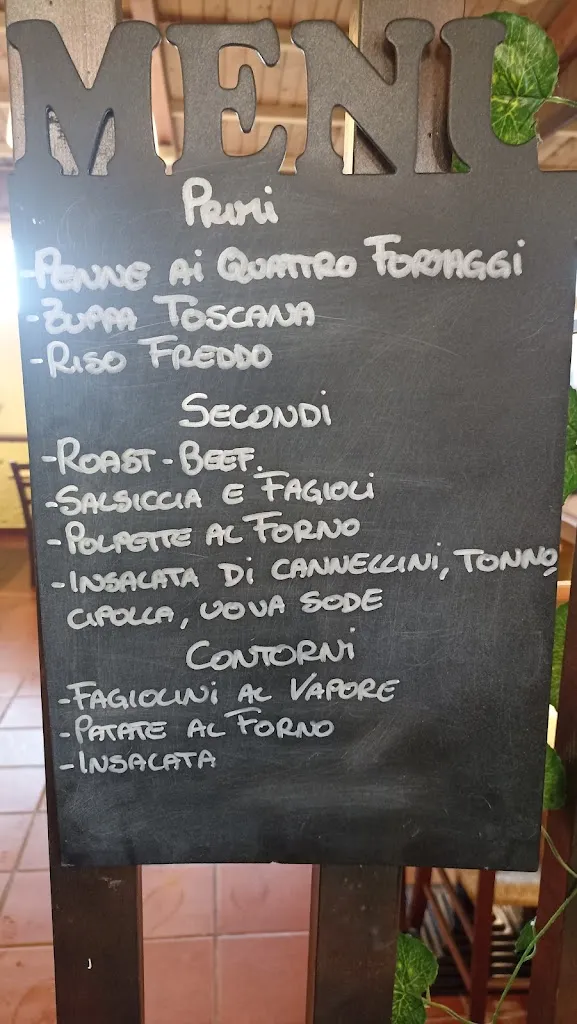 MENU
PRIMI
-PENNE Ai QUATTRO FORMAGGI
-ZUPPA TOSCANA
-RISO FREDDO
SECONDi
-ROAST-BEEF.
-SALSICCIA E FAGIOLI
-POLPETTE AL FORNO
-INSALATA Di CANNELLINI, TONNO,
CIPOLLA, UOVA SODE
CONTORNi
-FAGIOLINI AL VAPORE
-PATATE AL FORNO
-INSALATA